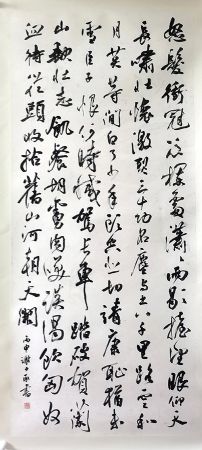 怒髮衝冠憑欄處瀟瀟雨歇抬望眼仰天
長嘯壯懷激烈三十功名塵與土八千里路雲和
月莫等閒白了少年頭空悲切靖康恥猶未
雪臣子恨何時滅駕長車踏破賀蘭
山缺壯志飢餐胡虜肉笑談渴飲匈奴
血待從頭收拾舊山河朝天闕
書